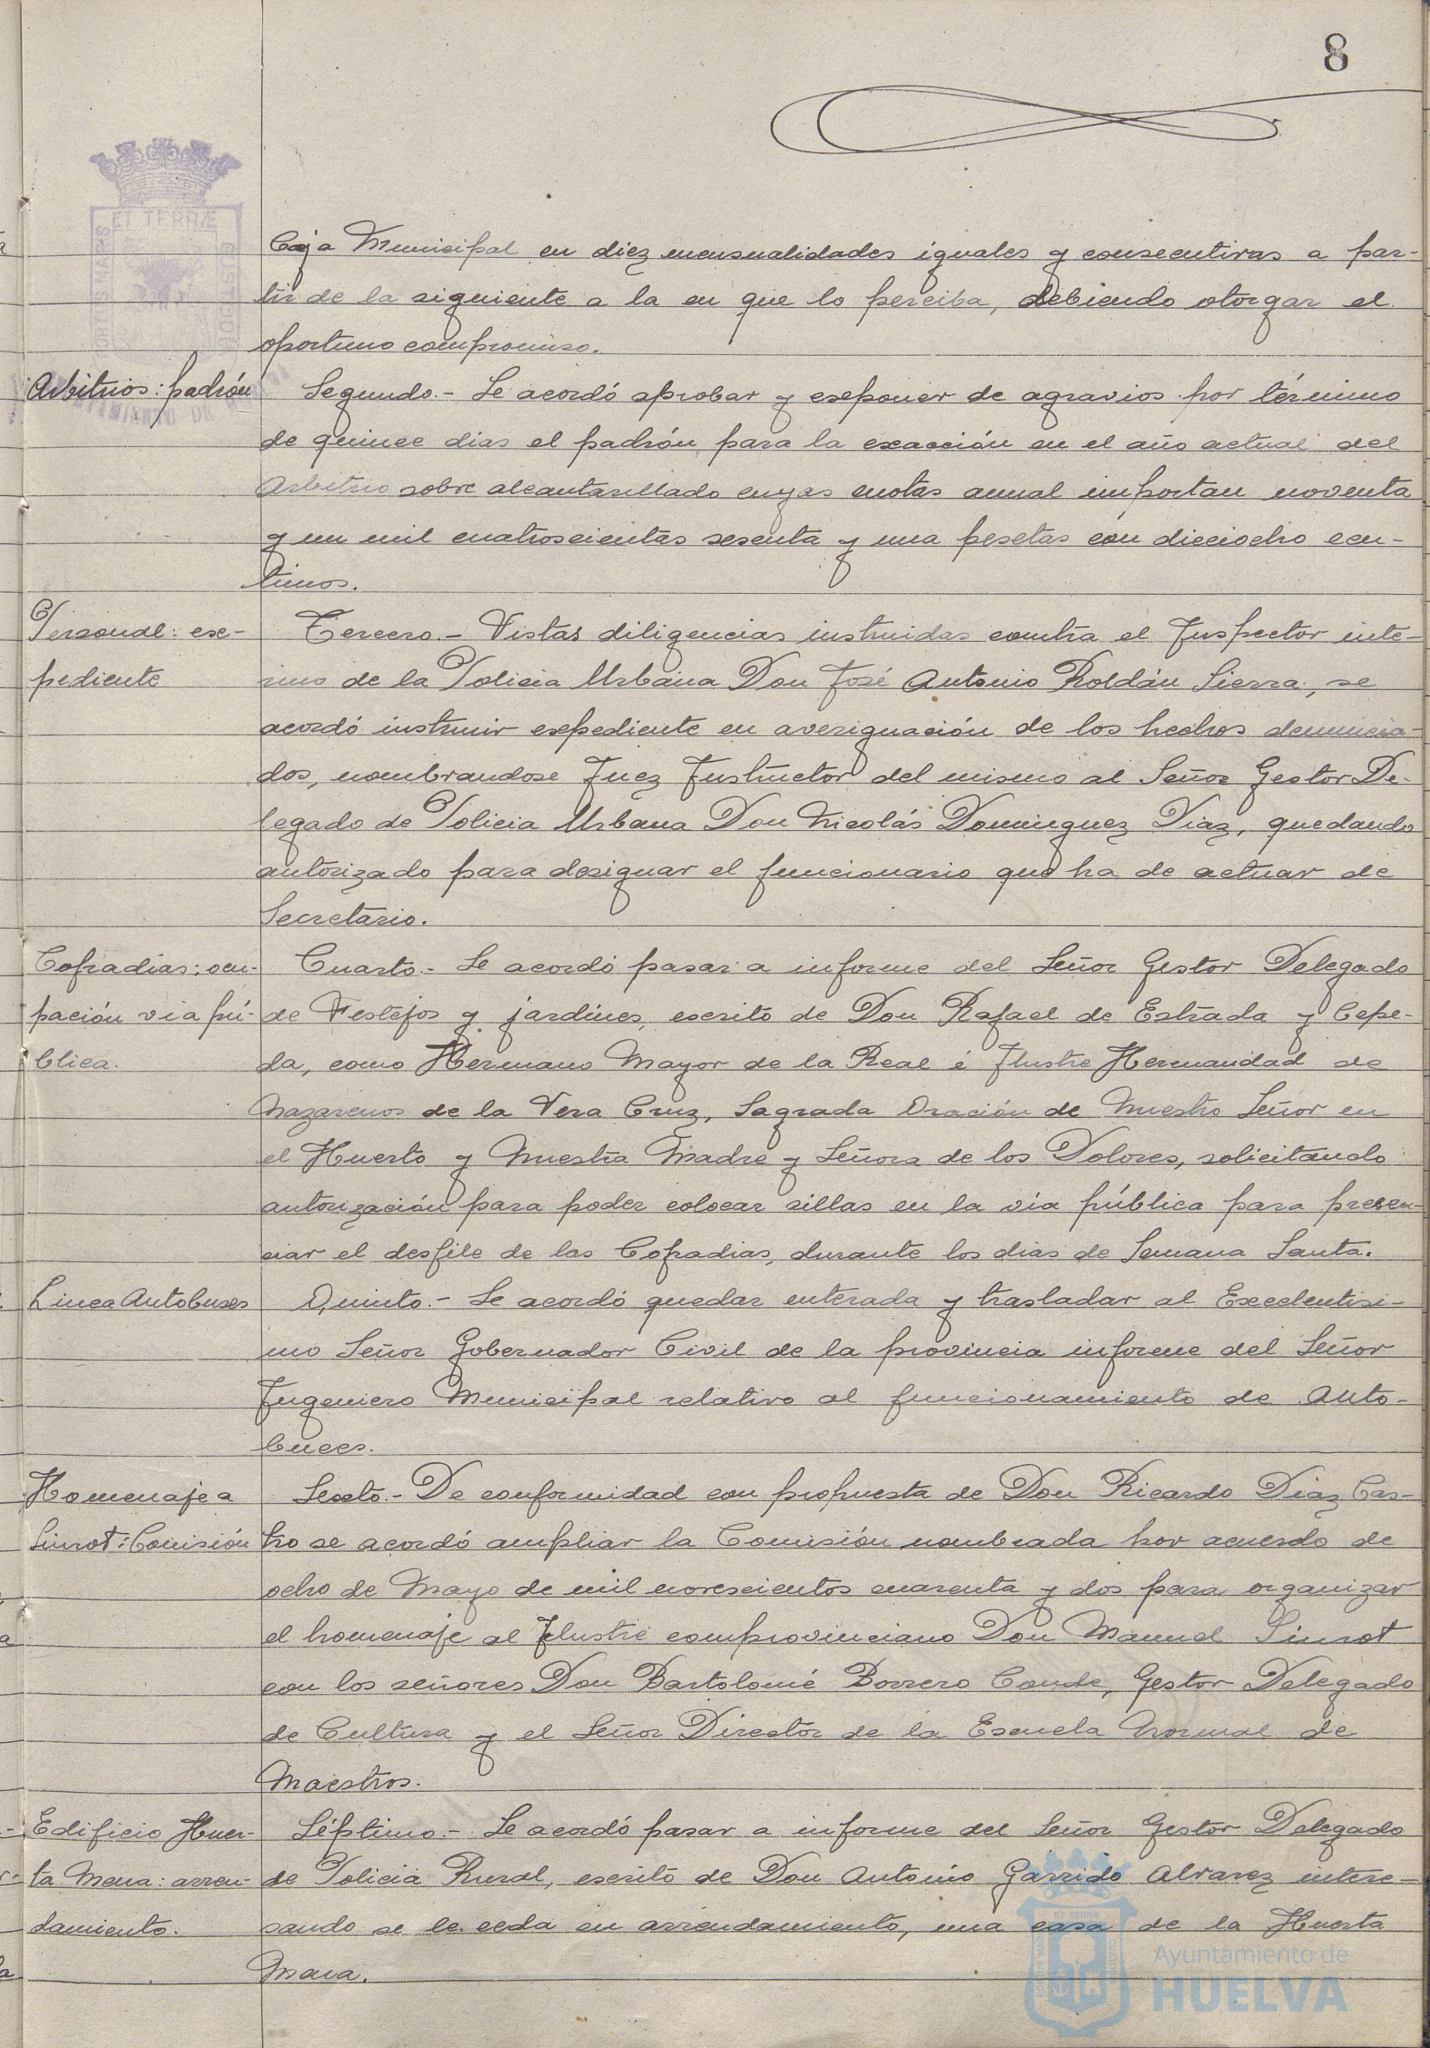 8
Caja Municipal en diez mensualidades iguales y consecutivas a par-
tir de la siguiente a la en que lo perciba, debiendo otorgar el
oportuno compromiso.
Arbitrios: padrón
Segundo.- Se acordó aprobar y exponer de agravios por término
de quince dias el padrón para la exacción en el año actual del
Arbitrio sobre alcantarillado cuyas cuotas anual importan noventa
y un mil cuatroscientas sesenta y una pesetas con dieciocho cen-
timos.
Personal: ex-
pediente
Tercero.- Vistas diligencias instruidas contra el Inspector inte-
rino de la Policia Urbana Don José Antonio Roldán Sierra, se
acordó instruir expediente en averiguación de los hechos denuncia-
dos, nombrandose Juez Instructor del mismo al Señor Gestor De-
legado de Policia Urbana Don Nicolás Dominguez Diaz, quedando
autorizado para designar el funcionario que ha de actuar de
Secretario.
Cofradias: ocu-
pación via pú-
blica.
Cuarto.- Se acordó pasar a informe del Señor Gestor Delegado
de Festejos y jardines, escrito de Don Rafael de Estrada y Cepe-
da, como Hermano Mayor de la Real é Ilustre Hermandad de
Nazarenos de la Vera Cruz, Sagrada Oración de Nuestro Señor en
el Huerto y Nuestra Madre y Señora de los Dolores, solicitando
autorización para poder colocar sillas en la via pública para presen-
ciar el desfile de las Cofradias, durante los dias de Semana Santa.
Linea Autobuses
Quinto.- Se acordó quedar enterada y trasladar al Excelentisi-
mo Señor Gobernador Civil de la provincia informe del Señor
Ingeniero Municipal relativo al funcionamiento de Auto-
buses.
Homenaje a
Siurot: Comisión
Sexto.- De conformidad con propuesta de Don Ricardo Diaz Cas-
tro se acordó ampliar la Comisión nombrada por acuerdo de
ocho de Mayo de mil novescientos cuarenta y dos para organizar
el homenaje al Ilustre comprovinciano Don Manuel Siurot
con los señores Don Bartolomé Borrero Conde, Gestor Delegado
de Cultura y el Señor Director de la Escuela Normal de
Maestros.
Edificio Huer-
ta Mena: arren-
damiento.
Séptimo.- Se acordó pasar a informe del Señor Gestor Delegado
de Policia Rural, escrito de Don Antonio Garrido Alvarez intere-
sando se le ceda en arrendamiento, una casa de la Huerta
Mena.
ET TERRÆ
Ayuntamiento de
HUELVA